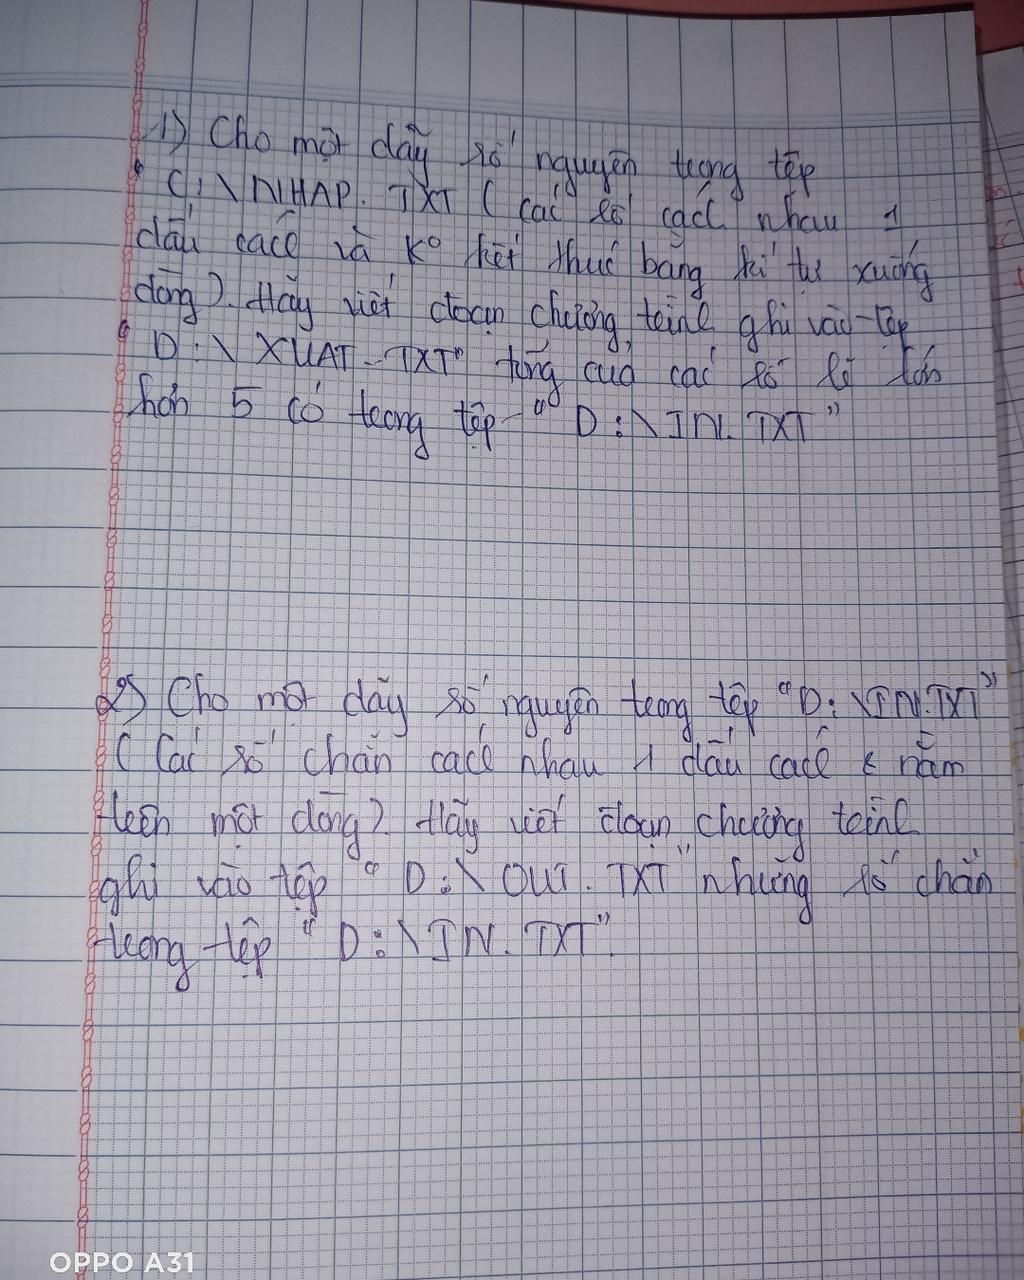 1) Cho một dãy số nguyên trong tệp
" C:\NHAP.TXT ( các số cách nhau 1
dấu cách và kº kết thúc bằng kí tự xuống
dòng). Hãy viết đoạn chương trình ghi vào tệp
" D:\XUAT-TXT" tổng của các số lẻ lớn
hơn 5 có trong tệp " D:\IN.TXT"
2) Cho một dãy số nguyên trong tệp "D:\IN.TXT"
( Các số chẵn cách nhau 1 dấu cách & nằm
trên một dòng). Hãy viết đoạn chương trình
ghi vào tệp " D:\OUT.TXT" những số chẵn
trong tệp " D:\IN.TXT".
OPPO A31